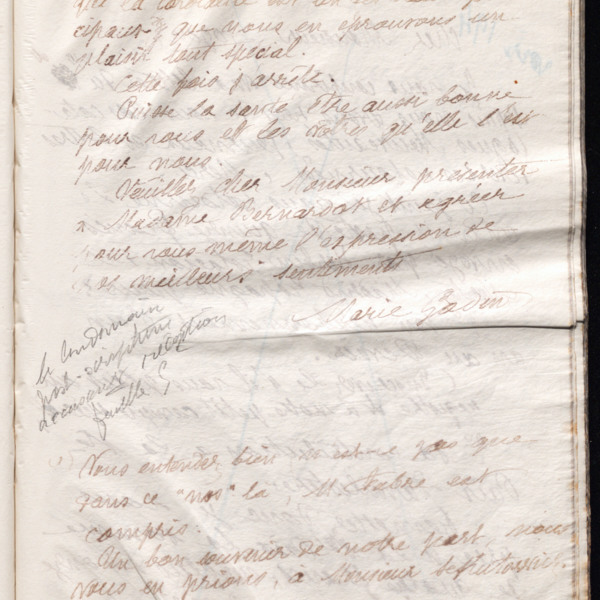 que la
cipaux que nous en éprouvons un
plaisir tout spécial.
Cette fois j'arrête.
Puisse la santé être aussi bonne
pour vous et les vôtres qu'elle l'est
pour nous.
Veuillez cher Monsieur présenter
à Madame Bernardot et agréer
pour vous même l'expression de
nos meilleurs sentiments
Marie Godin
le lendemain
post-scriptum
accusant réception
famille G
Vous entendez bien n'est-ce pas que
dans ce "nos" là, M. Fabre est
compris.
Un bon souvenir de notre part, nous
vous en prions, à Monsieur